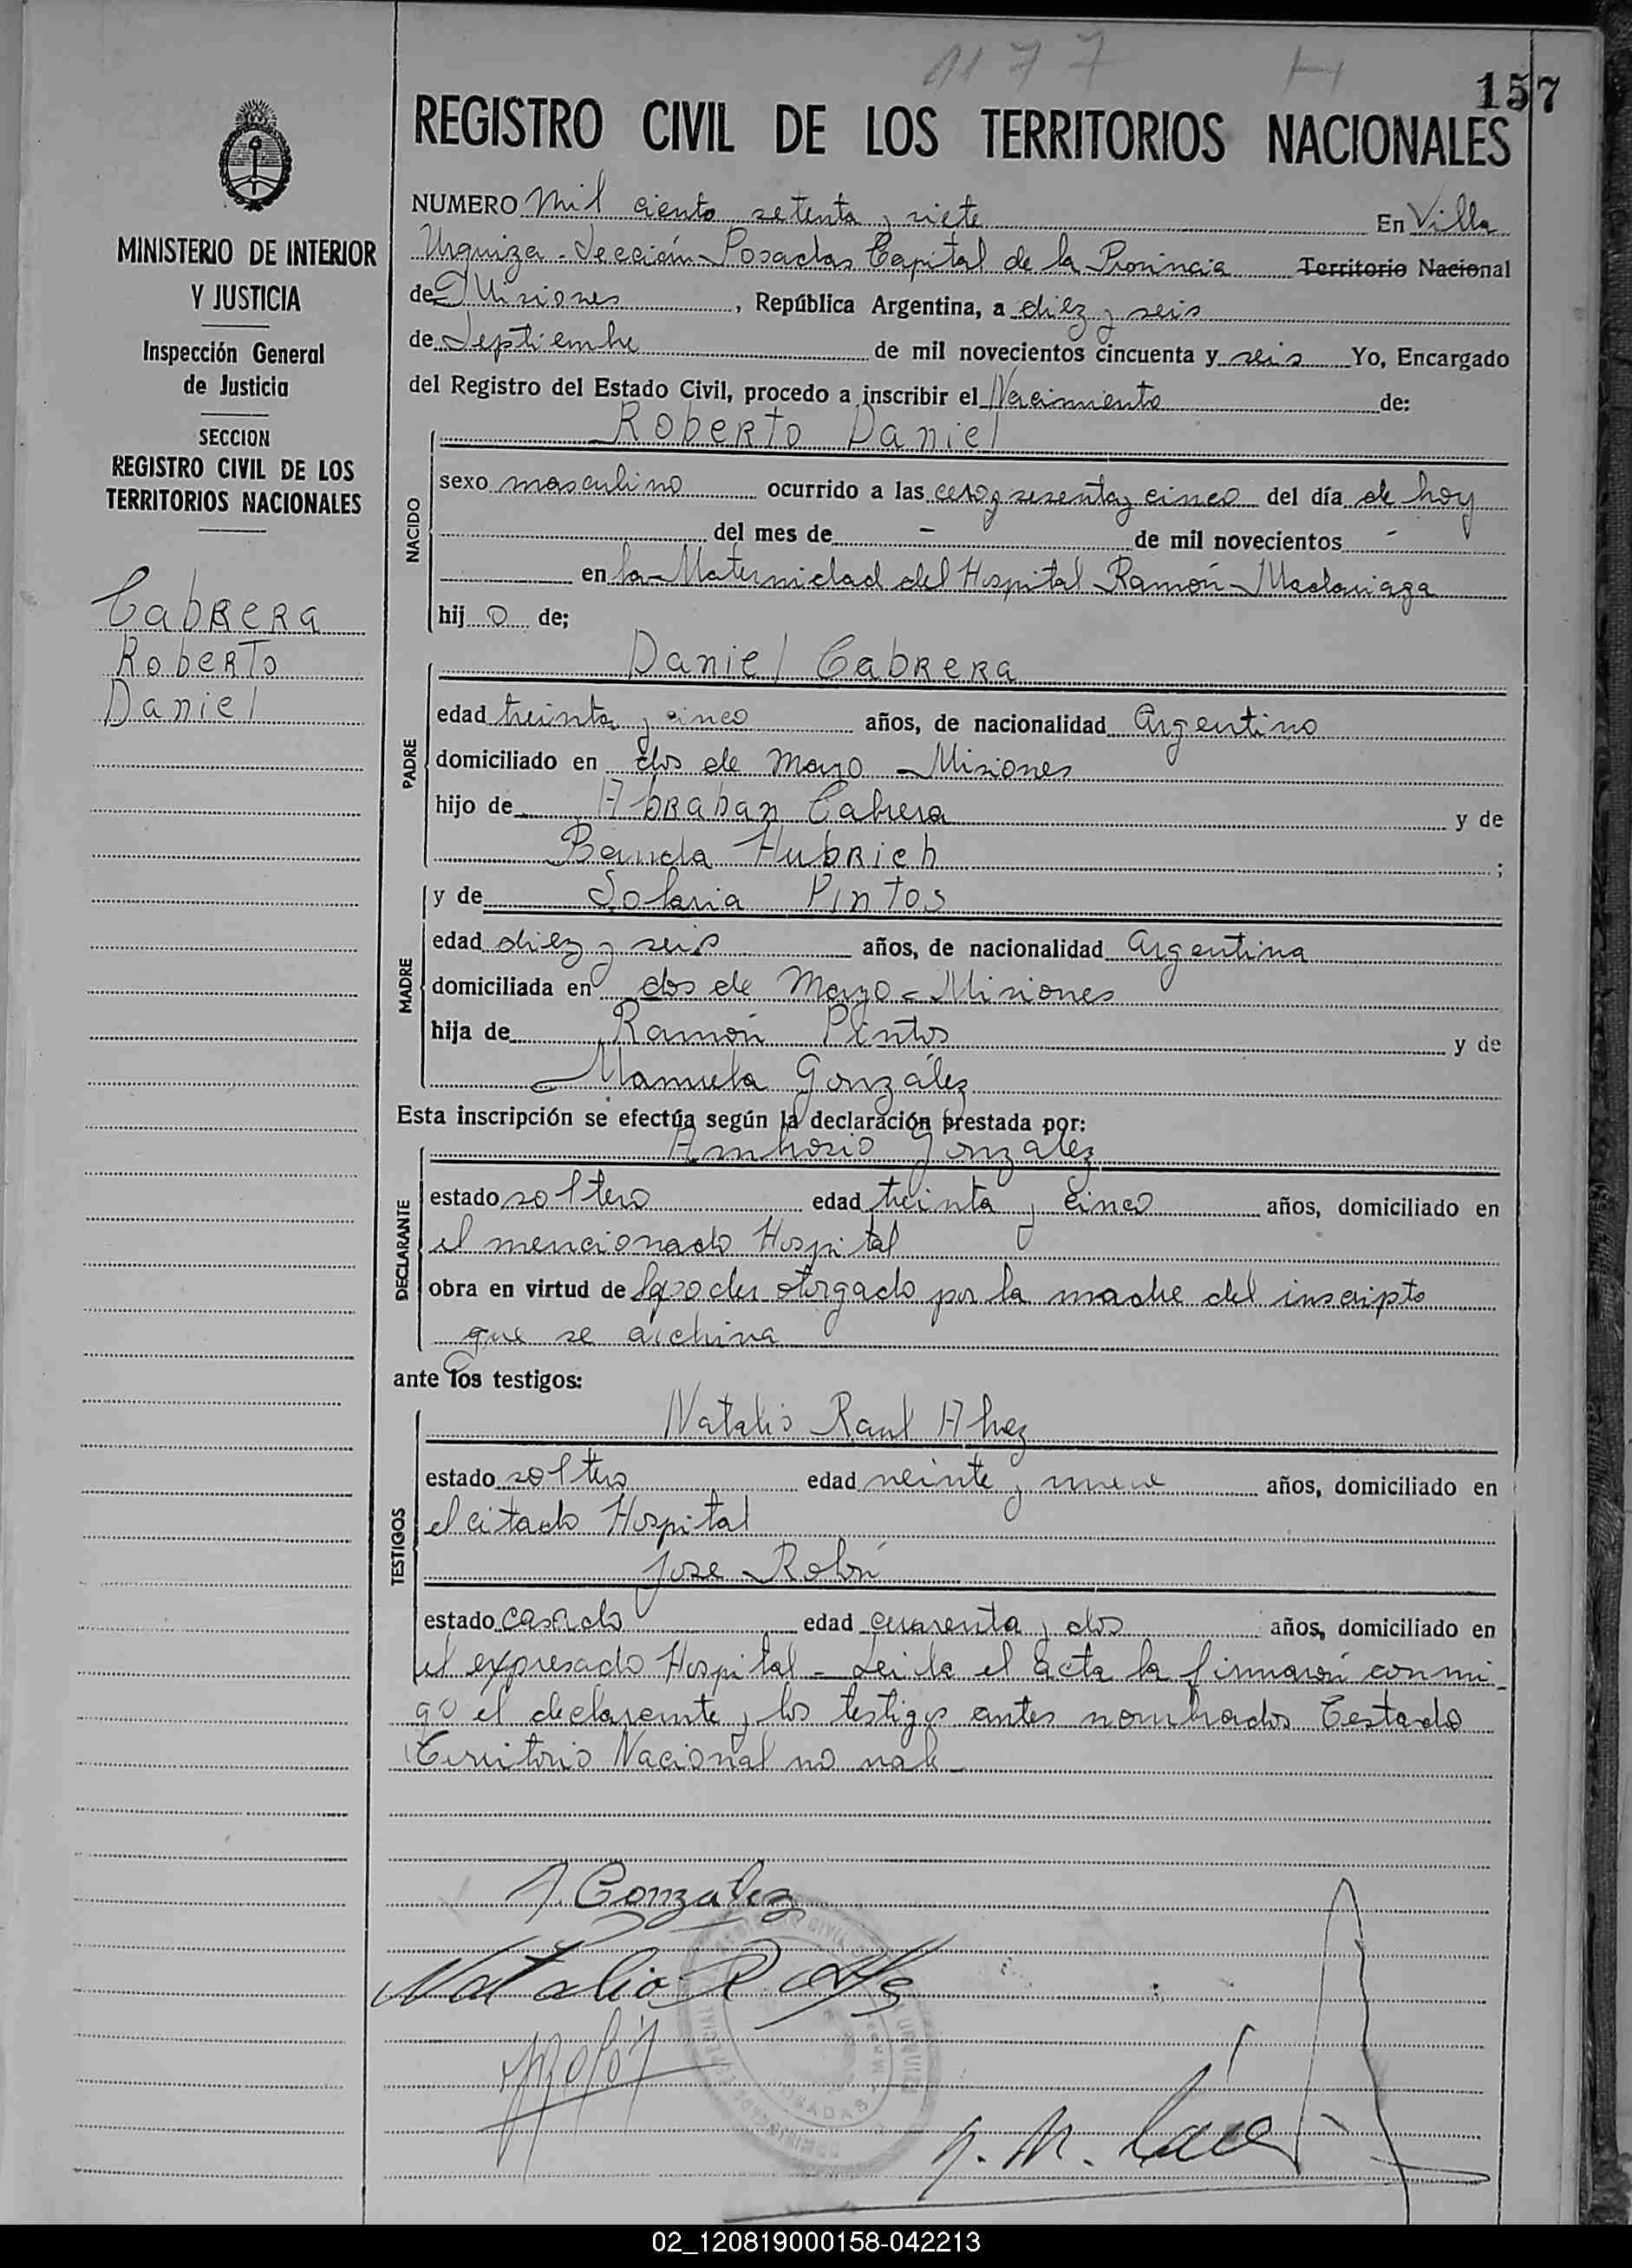 1177
157
REGISTRO CIVIL DE LOS TERRITORIOS NACIONALES
MINISTERIO DE INTERIOR
Y JUSTICIA
Inspección General
de Justicia
SECCION
REGISTRO CIVIL DE LOS
TERRITORIOS NACIONALES
Cabrera
Roberto
Daniel
NUMERO Mil ciento setenta y siete En Villa
Urquiza - Sección - Posadas Capital de la Provincia Territorio Nacional
de Misiones, República Argentina, a diez y seis
de Septiembre de mil novecientos cincuenta y seis Yo, Encargado
del Registro del Estado Civil, procedo a inscribir el Nacimiento de:
NACIDO
Roberto Daniel
sexo masculino ocurrido a las cero y sesenta y cinco del día de hoy
del mes de - de mil novecientos -
en la Maternidad del Hospital Ramón Madariaga
hij o de;
PADRE
Daniel Cabrera
edad treinta y cinco años, de nacionalidad Argentino
domiciliado en dos de Mayo - Misiones
hijo de Abrahan Cabrera y de
Hubrich ;
MADRE
y de Pintos
edad diez y seis años, de nacionalidad Argentina
domiciliada en dos de Mayo - Misiones
hija de Ramón Pintos y de
Manuela González
Esta inscripción se efectúa según la declaración prestada por:
DECLARANTE
Ambrosio Gonzalez
estado soltero edad treinta y cinco años, domiciliado en
el mencionado Hospital
obra en virtud de poder otorgado por la madre del inscripto
que se archiva
ante los testigos:
TESTIGOS
Natalio Raul
estado soltero edad veinte y nueve años, domiciliado en
el citado Hospital
Jose Rolón
estado casado edad cuarenta y dos años, domiciliado en
el expresado Hospital - Leida el acta la firmaron conmi-
go el declarante y los testigos antes nombrados Testado
Territorio Nacional no vale -
A. Gonzalez
Natalio R.
Rolón
02_120819000158-042213